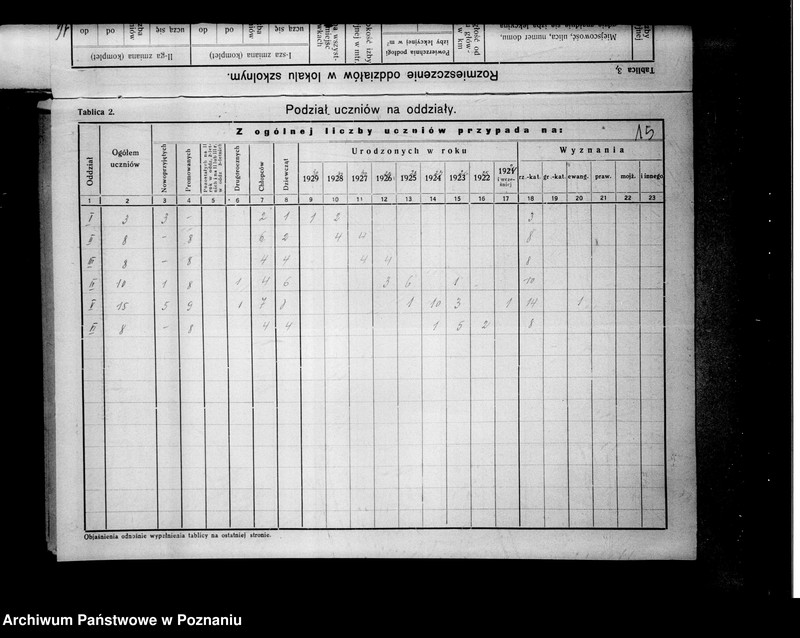 16
II-ga zmiana (komplet)
I-sza zmiana (komplet)
od
do
uczą się
od
do
uczą się
izby lekcyjnej w m²
Powierzchnia podłogi
w km
Miejscowość, ulica, numer domu,
Rozmieszczenie oddziałów w lokalu szkolnym.
Tablica 3.
Tablica 2.
Podział uczniów na oddziały.
15
Oddział
Ogółem uczniów
Z ogólnej liczby uczniów przypada na:
Nowoprzyjętych
Promowanych
Drugorocznych
Chłopców
Dziewcząt
Urodzonych w roku
Wyznania
1929 1928 1927 1926 1925 1924 1923 1922 1921 i wcześniej
rz.-kat. gr.-kat. ewang. praw. mojż. i innego
1 2 3 4 5 6 7 8 9 10 11 12 13 14 15 16 17 18 19 20 21 22 23
I 3 3 - 2 1 1 2 3
II 8 - 8 6 2 4 4 8
III 8 - 8 4 4 4 4 8
IV 10 1 8 1 4 6 3 6 1 10
V 15 5 9 1 7 8 1 10 3 1 14 1
VI 8 - 8 4 4 1 5 2 8
Objaśnienia odnośnie wypełnienia tablicy na ostatniej stronie.
Archiwum Państwowe w Poznaniu